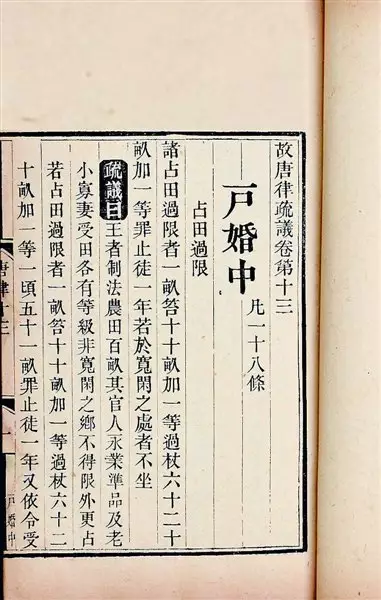 故唐律疏議卷第十三
戸婚中 凡一十八條
占田過限
諸占田過限者一畝笞十十畝加一等過杖六十二十
畝加一等罪止徒一年若於寬閒之處者不坐
疏議曰王者制法農田百畝其官人永業準品及老
小寡妻受田各有等級非寬閒之鄉不得限外更占
若占田過限者一畝笞十十畝加一等過杖六十二
十畝加一等一頃五十一畝罪止徒一年又依令受
唐律十三
一
戸婚中